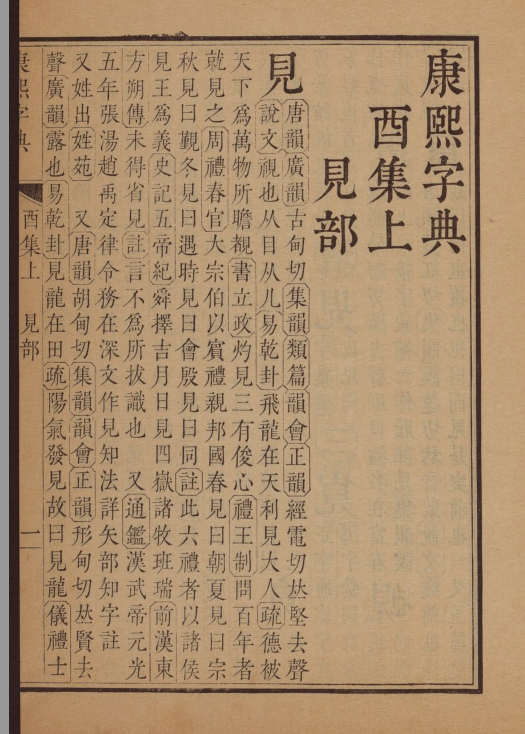 康熙字典
酉集上
見部
見
唐韻廣韻古甸切集韻類篇韻會正韻經電切𠀤堅去聲
說文視也从目从儿易乾卦飛龍在天利見大人疏德被
天下爲萬物所瞻覩書立政灼見三有俊心禮王制問百年者
就見之周禮春官大宗伯以賔禮親邦國春見曰朝夏見曰宗
秋見曰覲冬見曰遇時見曰會殷見曰同註此六禮者以諸侯
見王爲義史記五帝紀舜擇吉月日見四嶽諸牧班瑞前漢東
方朔傳未得省見註言不爲所拔識也 又通鑑漢武帝元光
五年張湯趙禹定律令務在深文作見知法詳矢部知字註
又姓出姓苑 又唐韻胡甸切集韻韻會正韻形甸切𠀤賢去
聲廣韻露也易乾卦見龍在田疏陽氣發見故曰見龍儀禮士
康熙字典
酉集上 見部 一